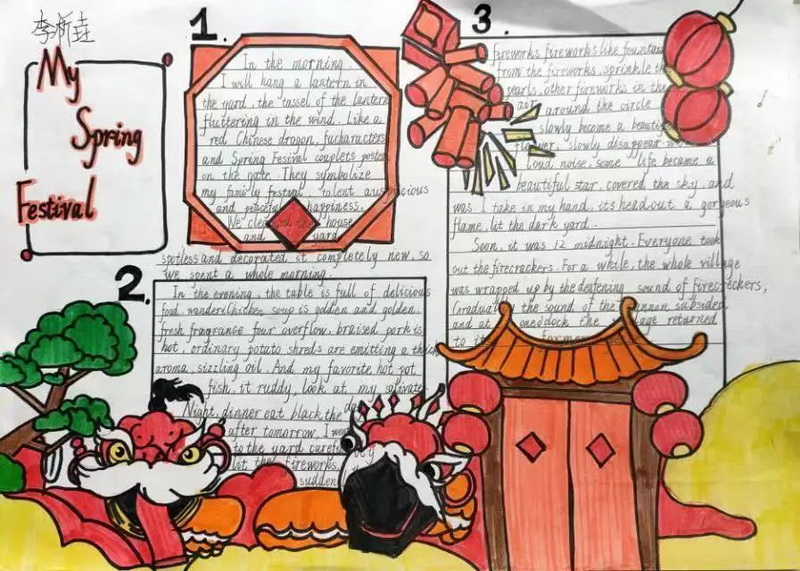 李
My
Spring
Festival
1.
In the morning
I will hang a lantern in
the yard, the tassel of the lantern
fluttering in the wind. Like a
red Chinese dragon, fucharacters
and Spring Fesival couplets posted
on the gate. They symbolize
my family festival, talent auspicious
and peaceful happiness.
We the house
and yard
spotless and decorated it completely new, so
we spent a whole morning.
2.
In the evening, the table is full of delicious
food, wander! Chicken soup is golden and golden,
fresh fragrance four overflow, braised pork is
hot, ordinary potato shreds are emitting a
aroma, sizzling oil. And my favorite hot pot
fish, it ruddy, look at my
Night, dinner eat black the
after tomorrow, I
to the yard
lit the fireworks,
sudden
3.
fireworks, fireworks like fountain
from the fireworks, sprinkle
other fireworks in the
air around the circle
slowly become a
flower, slowly disappear
loud noise, some life became a
beautiful star, covered the sky, and
was I take in my hand, its head out a gorgeous
flame, lit the dark yard.
Soon, it was 12 midnight. Everyone took
out the firecrackers. For a while, the whole village
was wrapped up by the deafening sound of firecreckers,
the sound of the subsided
and at the returned
to